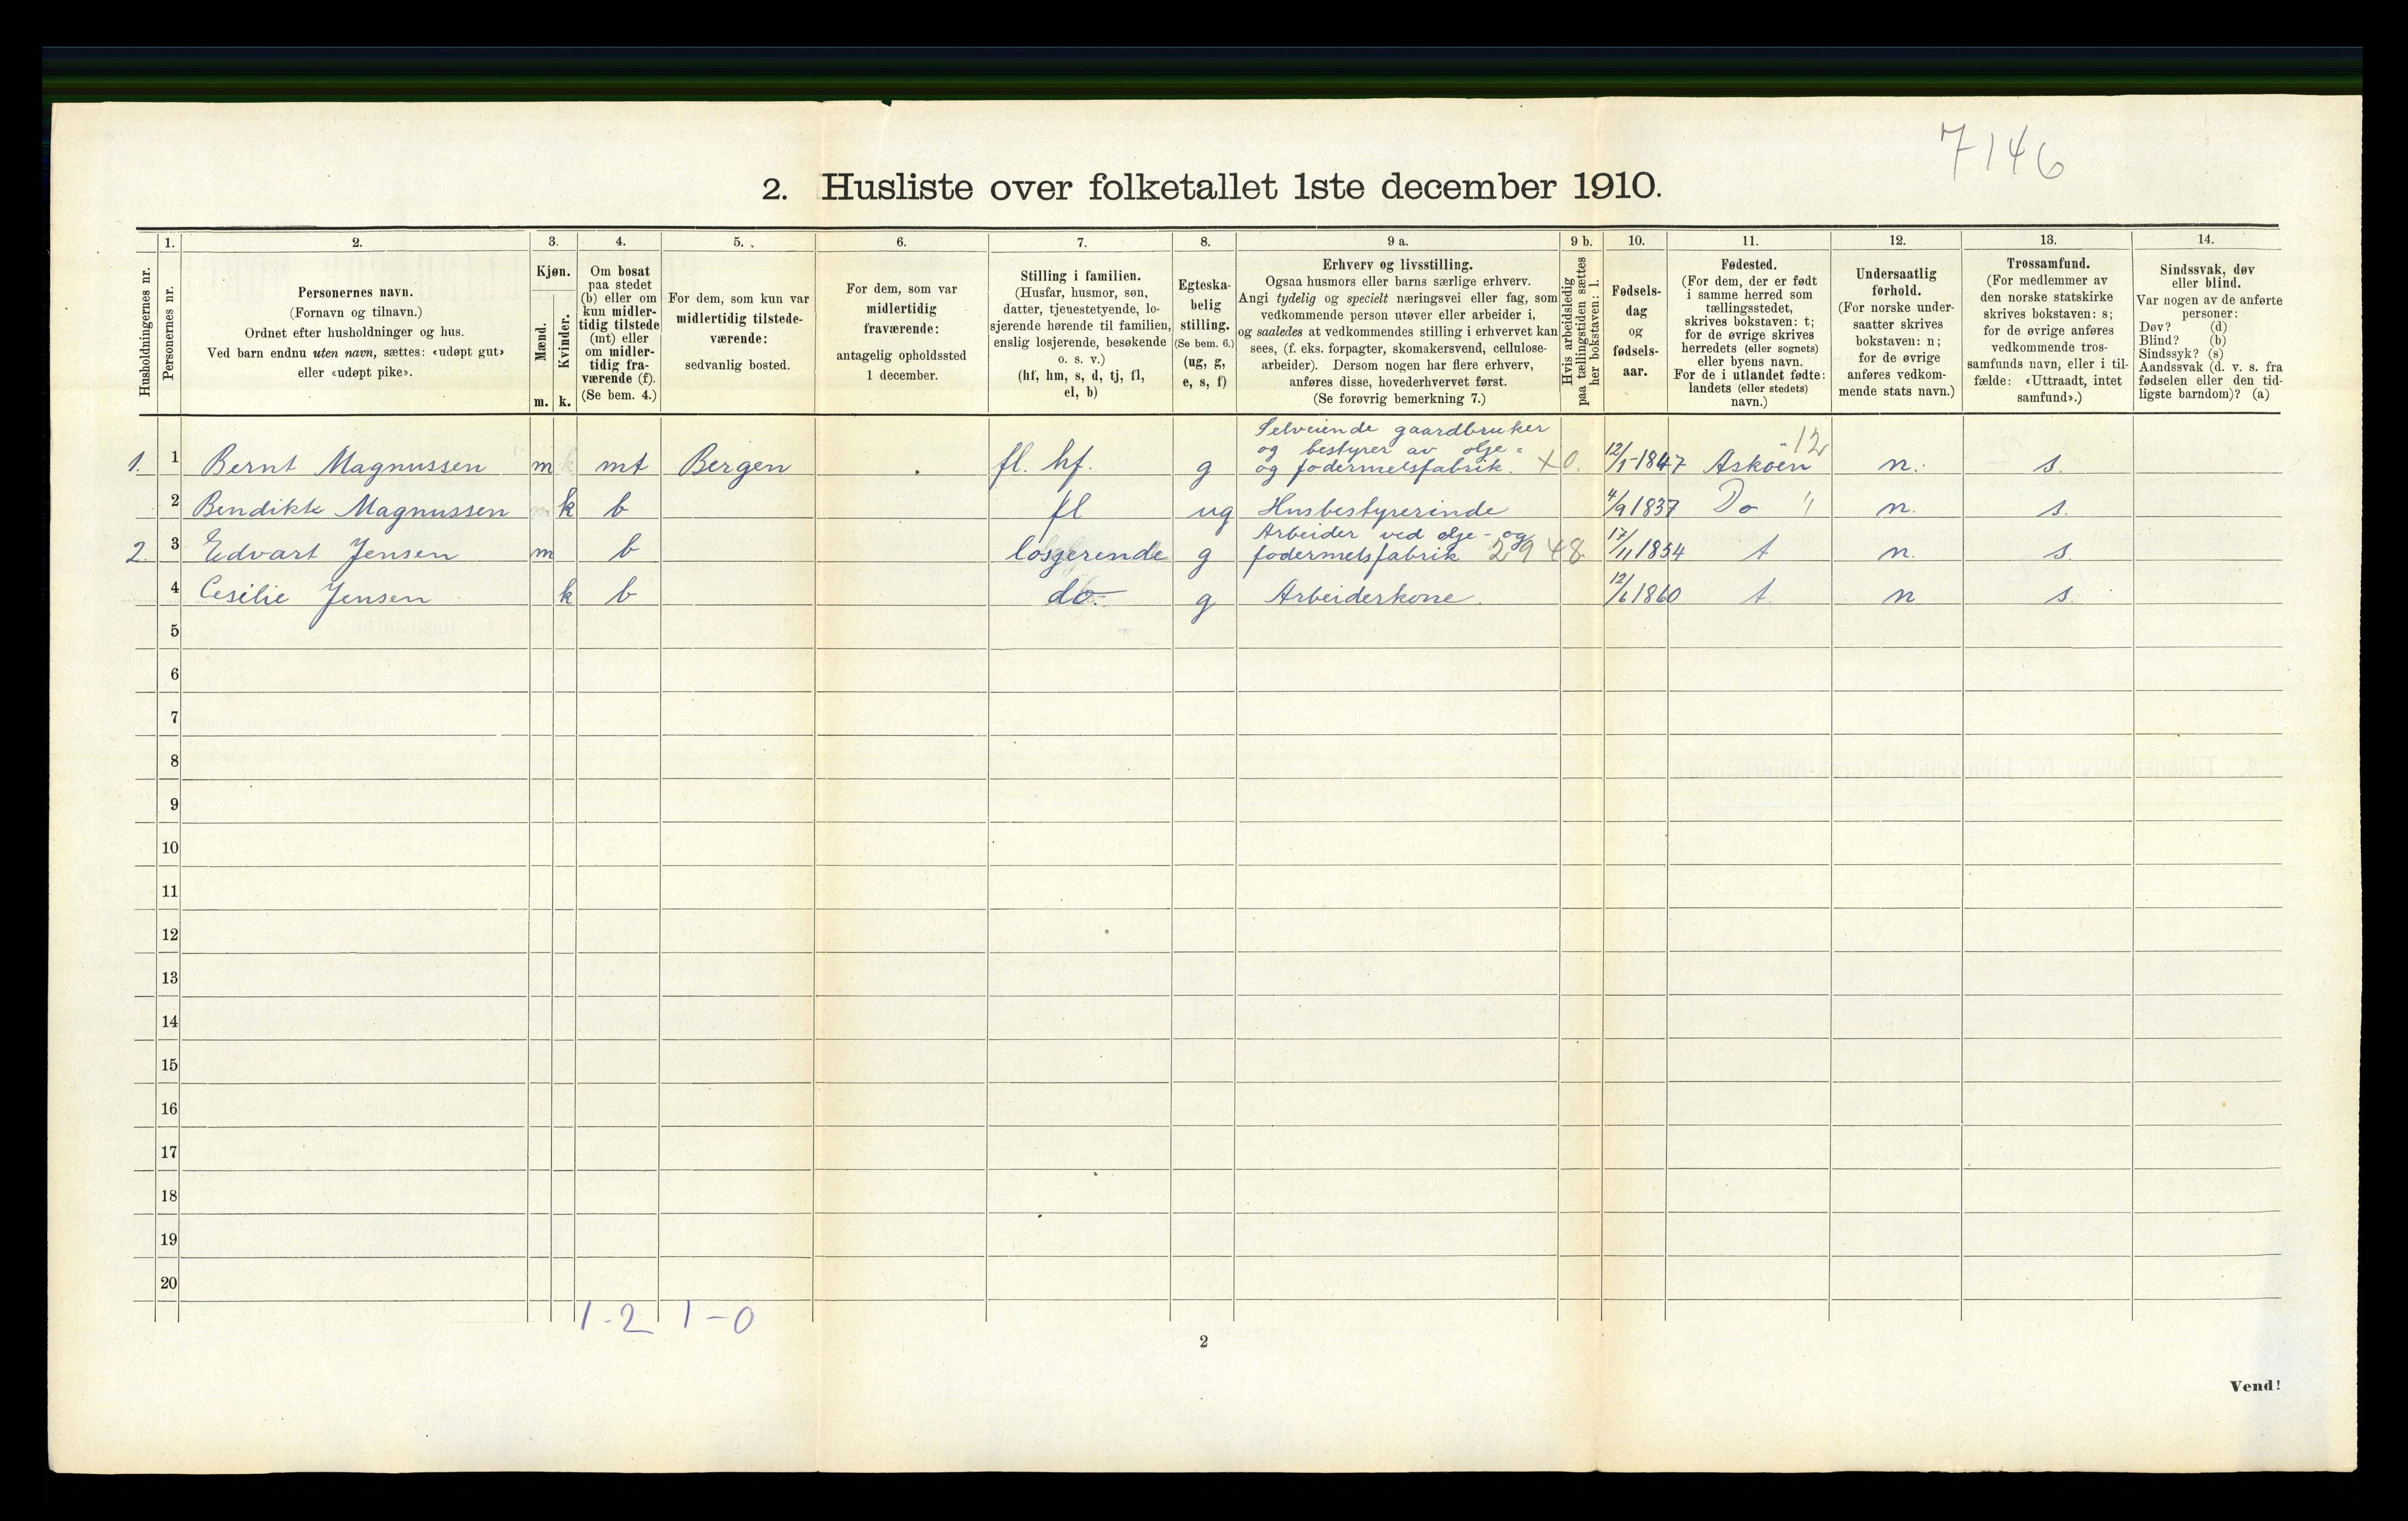 7146
2. Husliste over folketallet 1ste december 1910.
Husholdningernes nr.
1.
Personernes nr.
2.
Personernes navn.
(Fornavn og tilnavn.)
Ordnet efter husholdninger og hus.
Ved barn endnu uten navn, sættes: «udøpt gut»
eller «udøpt pike».
3.
Kjøn.
Mænd.
Kvinder.
m. k.
4.
Om bosat
paa stedet
(b) eller om
kun midler-
tidig tilstede
(mt) eller
om midler-
tidig fra-
værende (f).
(Se bem. 4.)
5.
For dem, som kun var
midlertidig tilstede-
værende:
sedvanlig bosted.
6.
For dem, som var
midlertidig
fraværende:
antagelig opholdssted
1 december.
7.
Stilling i familien.
(Husfar, husmor, søn,
datter, tjenestetyende, lo-
sjerende hørende til familien,
enslig losjerende, besøkende
o. s. v.)
(hf, hm, s, d, tj, fl,
el, b)
8.
Egteska-
belig
stilling.
(Se bem. 6.)
(ug, g,
e, s, f)
9 a.
Erhverv og livsstilling.
Ogsaa husmors eller barns særlige erhverv.
Angi tydelig og specielt næringsvei eller fag, som
vedkommende person utøver eller arbeider i,
og saaledes at vedkommendes stilling i erhvervet kan
sees, (f. eks. forpagter, skomakersvend, cellulose-
arbeider). Dersom nogen har flere erhverv,
anføres disse, hovederhvervet først.
(Se forøvrig bemerkning 7.)
9 b.
Hvis arbeidsledig
paa tællingstiden sættes
her bokstaven: l.
10.
Fødsels-
dag
og
fødsels-
aar.
11.
Fødested.
(For dem, der er født
i samme herred som
tællingsstedet,
skrives bokstaven: t;
for de øvrige skrives
herredets (eller sognets)
eller byens navn.
For de i utlandet fødte:
landets (eller stedets)
navn.)
12.
Undersaatlig
forhold.
(For norske under-
saatter skrives
bokstaven: n;
for de øvrige
anføres vedkom-
mende stats navn.)
13.
Trossamfund.
(For medlemmer av
den norske statskirke
skrives bokstaven: s;
for de øvrige anføres
vedkommende tros-
samfunds navn, eller i til-
fælde: «Uttraadt, intet
samfund».)
14.
Sindssvak, døv
eller blind.
Var nogen av de anførte
personer:
Døv? (d)
Blind? (b)
Sindssyk? (s)
Aandssvak (d. v. s. fra
fødselen eller den tid-
ligste barndom)? (a)
Selveiende gaardbruker
og bestyrer av olje-
1. 1 Bernt Magnussen m mt Bergen fl. hf. g og fodermelsfabrik. x0. 12/1-1847 Askøen 12 n. s.
2 Bendikte Magnussen k b fl ug Husbestyrerinde 4/9 1837 Do " n. s.
Arbeider ved olje- og
2. 3 Edvart Jensen m b losjerende g fodermelsfabrik 2948 17/11 1854 t n. s.
4 Cesilie Jensen k b do.- g Arbeiderkone. 12/6 1860 t. n s.
5
6
7
8
9
10
11
12
13
14
15
16
17
18
19
20
1-2 1-0
2
Vend!